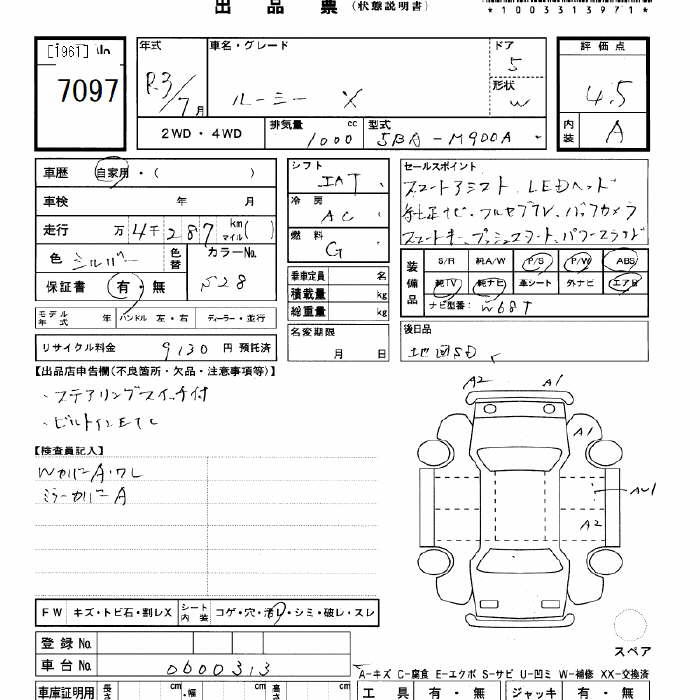 出品票(状態説明書)
*1003313971*
[1961]
7097
年式
R3/7月
車名・グレード
ルーミー X
ドア
5
形状
W
評価点
4.5
内装
A
2WD・4WD
排気量
1000
cc
型式
5BA-M900A
車歴
自家用・( )
車検
年 月
走行
万4千287
km
マイル
( )
色
シルバー
色替
カラーNo.
S28
保証書
有・無
モデル年式
年
ハンドル 左・右
ディーラー・並行
リサイクル料金
9130円 預託済
シフト
IAT
冷房
AC
燃料
G
乗車定員
名
積載量
kg
総重量
kg
名変期限
月 日
セールスポイント
スマートアシスト LEDヘッド
純正ナビ・フルセグTV、バックカメラ
スマートキー、プッシュスタート、パワースライド
装備品
S/R 純A/W P/S P/W ABS
純TV 純ナビ 革シート 外ナビ エアB
ナビ型番:W68T
後日品
地図SD
【出品店申告欄(不良箇所・欠品・注意事項等)】
・ステアリングスイッチ付
・ビルトインETC
【検査員記入】
WカバーA・ワレ
ミラーカバーA
A2
A1
A1
AU1
A2
スペア
FW
キズ・トビ石・割レX
シート内装
コゲ・穴・汚レ・シミ・破レ・スレ
登録No.
車台No.
0600313
A-キズ C-腐食 E-エクボ S-サビ U-凹ミ W-補修 XX-交換済
車庫証明用
長さ
cm
・幅
cm
高さ
cm
工具
有・無
ジャッキ
有・無